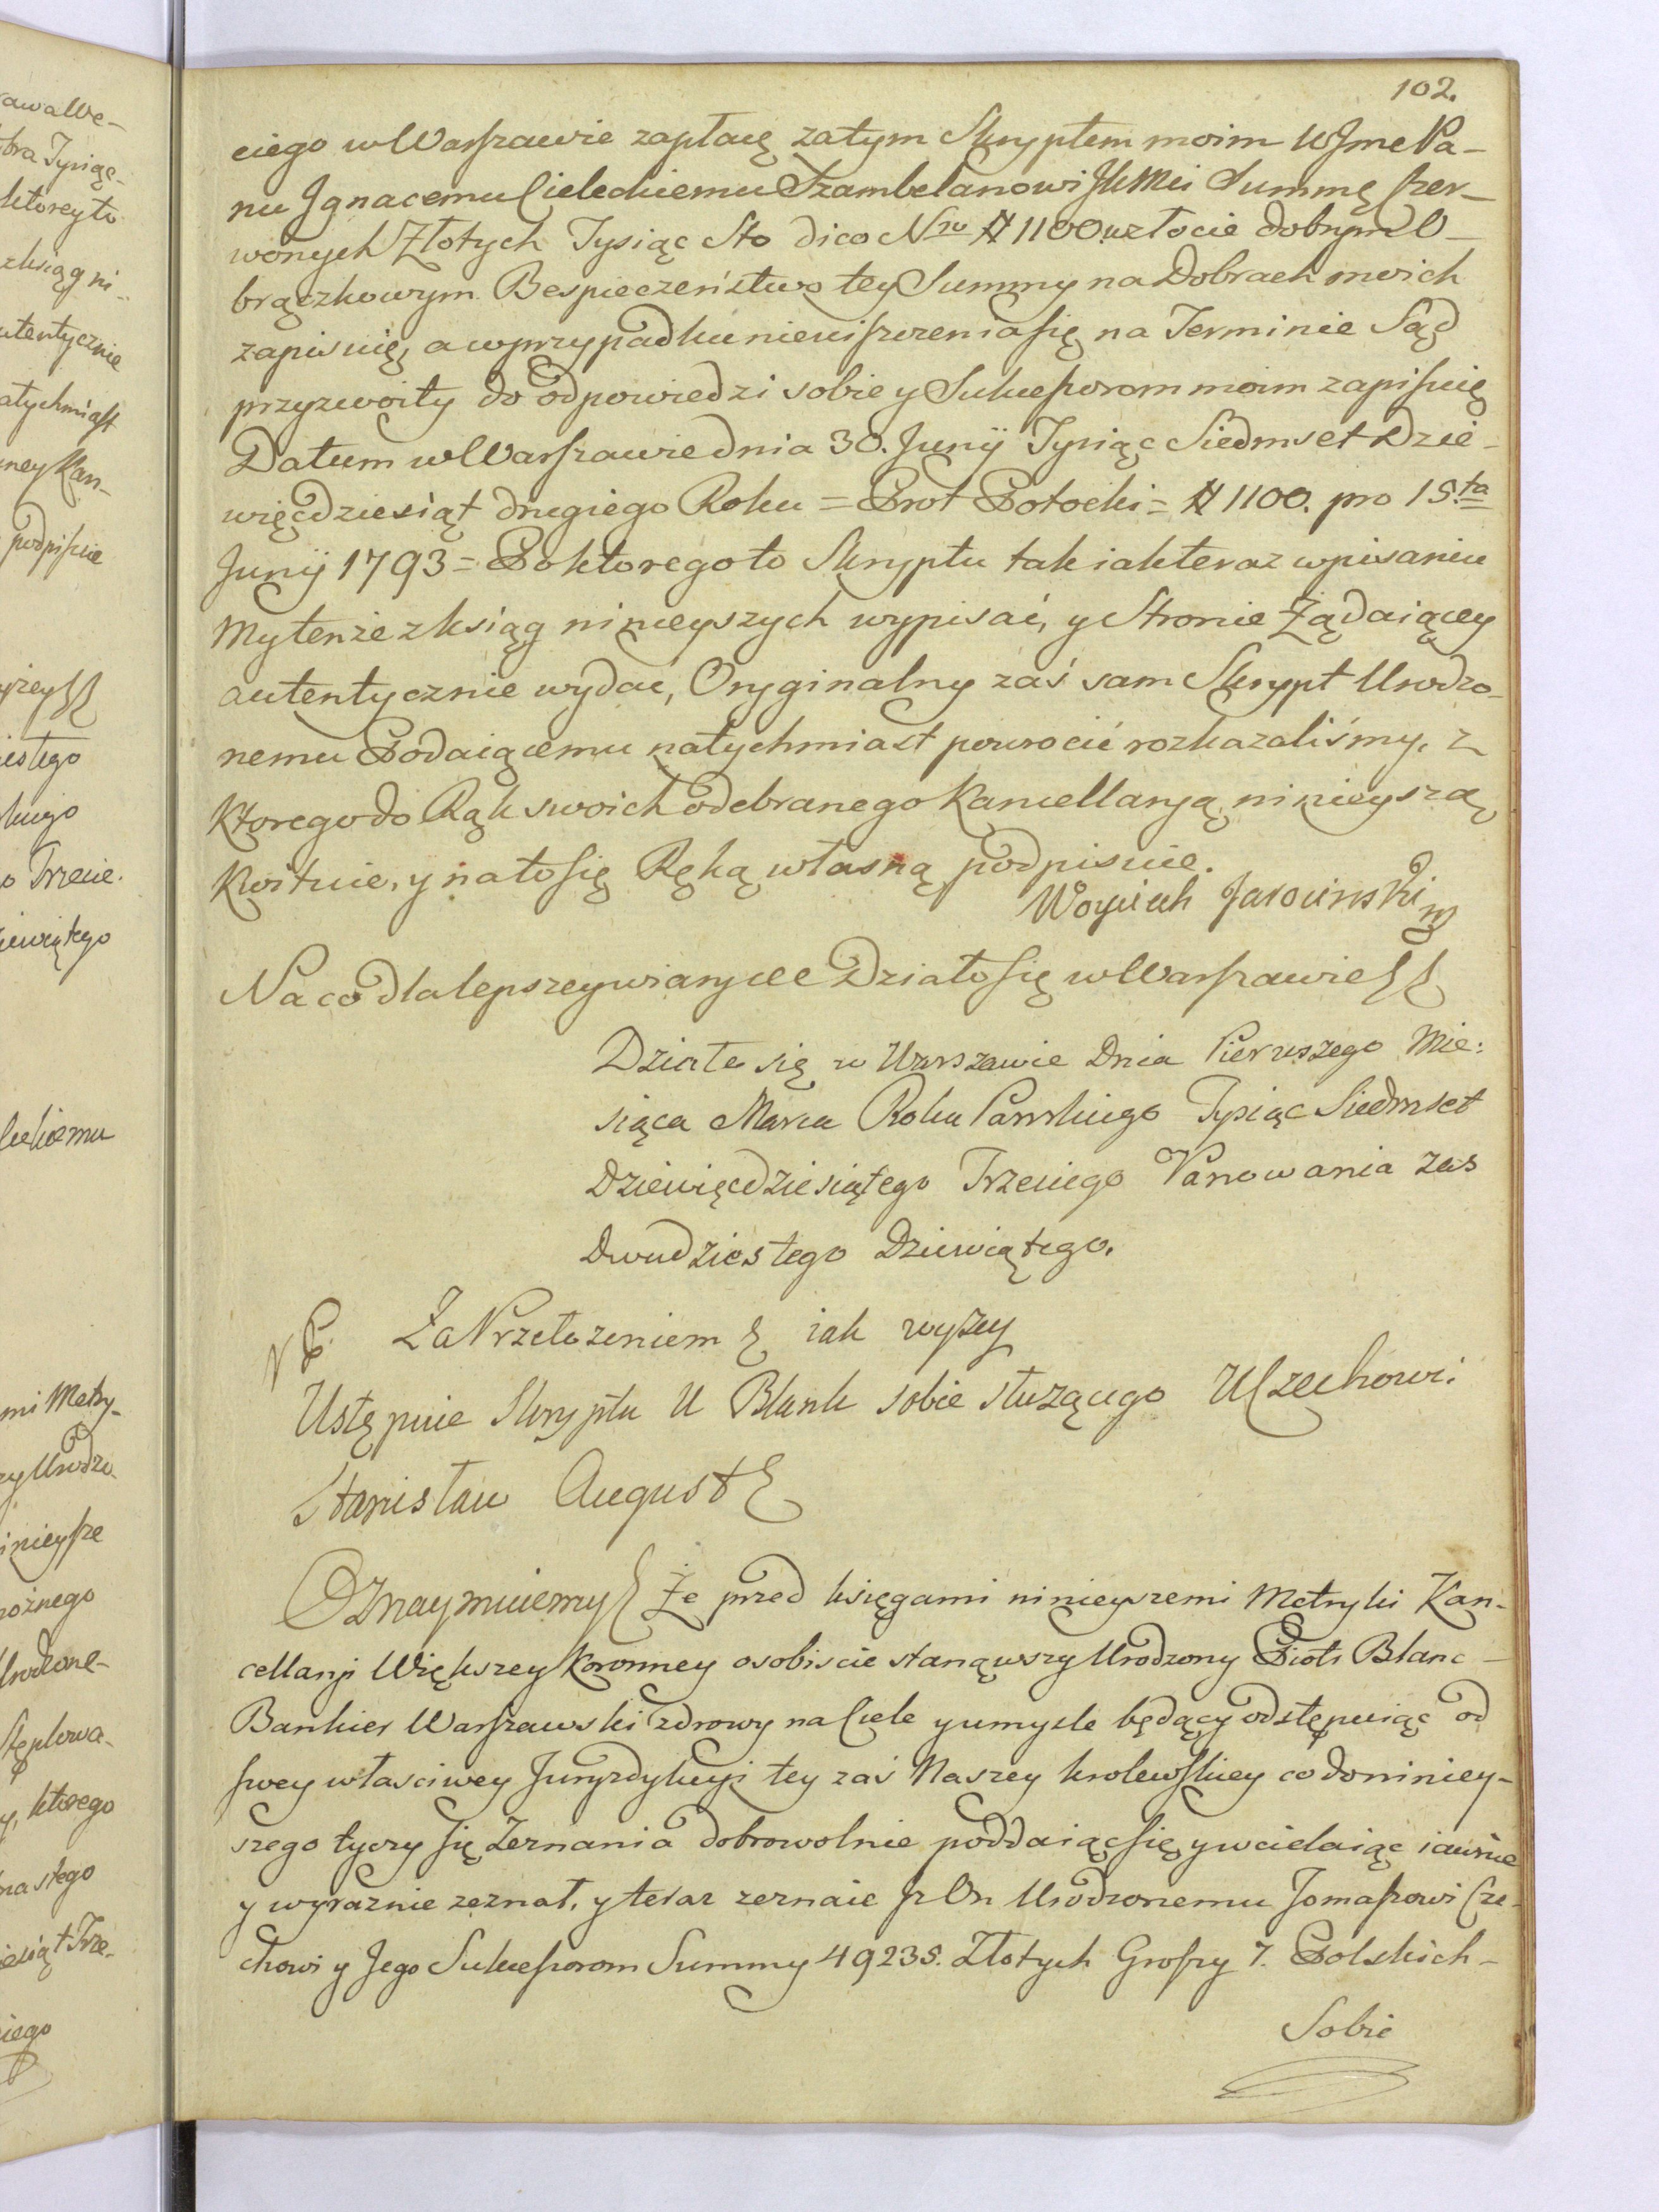 102.
ciego w Warszawie zapłacę za tym Skryptem moim WJmć Pa-
nu Jgnacemu Cieleckiemu Szambelanowi JKMci Summę Czer-
wonych Złotych Tysiąc Sto dico Nro # 1100 w złocie dobrym O-
brączkowym. Bespieczeństwo tey Summy na Dobrach moich
zapisuię, a w przypadku nieuiszczenia się na Terminie Sąd
przyzwoity do odpowiedzi sobie y Sukcessorom moim zapisuię
Datum w Warszawie dnia 30. Junÿ Tysiąc Siedmset Dzie-
więcdziesiąt drugiego Roku = Prot Potocki = # 1100. pro 15.ta
Junÿ 1793 = Po ktorego to Skryptu tak iak teraz wpisaniu
My tenże z ksiąg ninieyszych wypisać, y Stronie Żądaiącey
autentycznie wydać, Oryginalny zaś sam Skrypt Urodzo-
nemu Podaiącemu natychmiast powrocić rozkazaliśmy, z
Ktorego do Rąk swoich odebranego Kancellaryą ninieyszą
Kwituie, y na to się Ręką własną podpisuie.
Woyciech Jarocinski mp
Na co dla lepszey wiary etc Działo się w Warszawie
Działo się w Warszawie Dnia Pierwszego Mie:
siąca Marca Roku Pańskiego Tysiąc Siedmset
Dziewięcdziesiątego Trzeciego Panowania zas
Dwudziestego Dziewiątego.
Za Przełożeniem iak wyżey
Ustępuie Skryptu U Blank sobie służącego U Czechowi.
Stanisław August
Oznaymuiemy Że przed księgami ninieyszemi Metryki Kan-
cellaryi Większey Koronney osobiscie stanąwszy Urodzony Piotr Blanc
Bankier Warszawski zdrowy na Ciele y umysle będący odstępuiąc od
swey własciwey Juryzdykcyi tey zaś Naszey krolewskiey co do niniey-
szego tyczy się Zeznania dobrowolnie poddaiąc się y wcielaiąc iawnie
y wyraznie zeznał, y teraz zeznaie iż On Urodzonemu Tomaszowi Cze-
chowi y Jego Sukcessorom Summy 49235. Złotych Groszy 7. Polskich -
Sobie